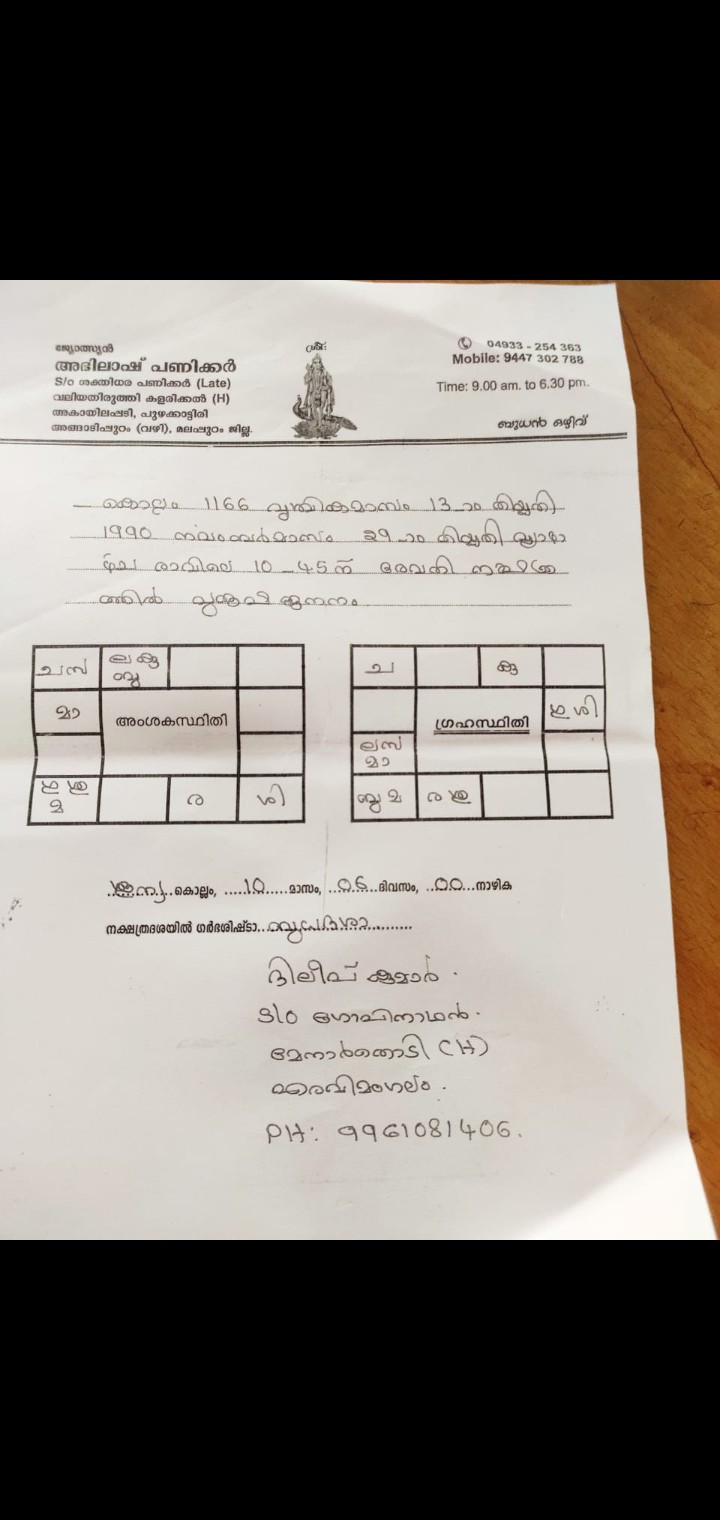 ജ്യോത്സ്യൻ
അഭിലാഷ് പണിക്കർ
S/o ശക്തിധര പണിക്കർ (Late)
വലിയതിരുത്തി കളരിക്കൽ (H)
അകായിലപ്പടി, പുഴക്കാട്ടിരി
അങ്ങാടിപ്പുറം (വഴി), മലപ്പുറം ജില്ല.
ശ്രീഃ
04933 - 254 363
Mobile: 9447 302 788
Time: 9.00 am. to 6.30 pm.
ബുധൻ ഒഴിവ്
കൊല്ലം 1166 വൃശ്ചികമാസം 13-ാം തിയ്യതി
1990 നവംബർമാസം 29-ാം തിയ്യതി വ്യാഴാ
ഴ്ച രാവിലെ 10-45ന് രേവതി നക്ഷത്ര
ത്തിൽ പുരുഷജനനം
ചസ
ലകു
ബു
മാ
അംശകസ്ഥിതി
മ
ര
ശി
ച
കു
ഗ്രഹസ്ഥിതി
ലസ
മാ
ബു മ
കൊല്ലം, 10 മാസം, 06 ദിവസം, 00 നാഴിക
നക്ഷത്രദശയിൽ ഗർഭശിഷ്ടാ
ദിലീപ് കുമാർ.
S/o ഗോപിനാഥൻ.
മേനാർതൊടി (H)
വൈരവിമംഗലം.
PH: 9961081406.